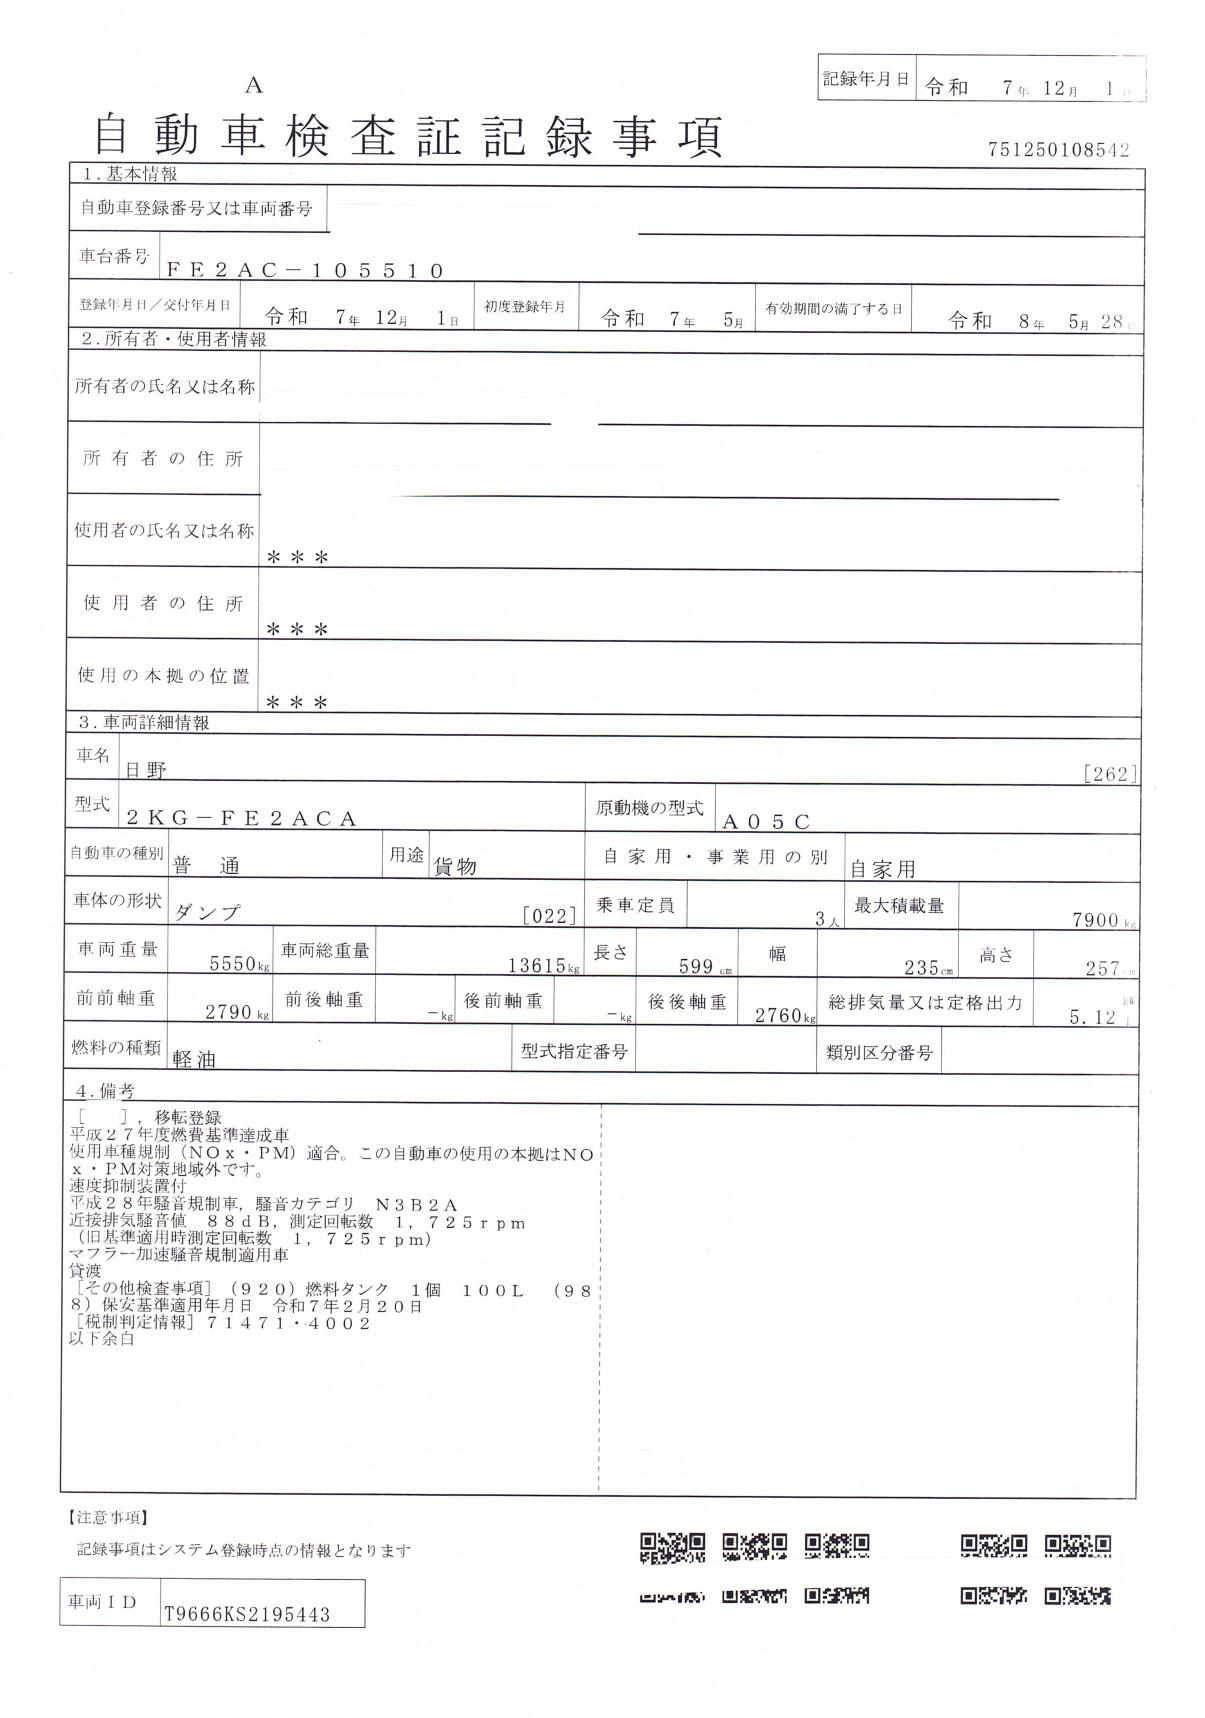 記録年月日 令和 7年 12月 1日
A
自動車検査証記録事項
751250108542
1.基本情報
自動車登録番号又は車両番号
車台番号 FE2AC-105510
登録年月日／交付年月日 令和 7年 12月 1日 初度登録年月 令和 7年 5月 有効期間の満了する日 令和 8年 5月 28日
2.所有者・使用者情報
所有者の氏名又は名称
所有者の住所
使用者の氏名又は名称 ＊＊＊
使用者の住所 ＊＊＊
使用の本拠の位置 ＊＊＊
3.車両詳細情報
車名 日野 [262]
型式 2KG-FE2ACA 原動機の型式 A05C
自動車の種別 普通 用途 貨物 自家用・事業用の別 自家用
車体の形状 ダンプ [022] 乗車定員 3人 最大積載量 7900kg
車両重量 5550kg 車両総重量 13615kg 長さ 599cm 幅 235cm 高さ 257cm
前前軸重 2790kg 前後軸重 -kg 後前軸重 -kg 後後軸重 2760kg 総排気量又は定格出力 5.12 kW L
燃料の種類 軽油 型式指定番号 類別区分番号
4.備考
［　　］，移転登録
平成２７年度燃費基準達成車
使用車種規制（ＮＯｘ・ＰＭ）適合。この自動車の使用の本拠はＮＯ
ｘ・ＰＭ対策地域外です。
速度抑制装置付
平成２８年騒音規制車，騒音カテゴリ　Ｎ３Ｂ２Ａ
近接排気騒音値　８８ｄＢ，測定回転数　１，７２５ｒｐｍ
（旧基準適用時測定回転数　１，７２５ｒｐｍ）
マフラー加速騒音規制適用車
貸渡
［その他検査事項］（９２０）燃料タンク　１個　１００Ｌ　（９８
８）保安基準適用年月日　令和７年２月２０日
［税制判定情報］７１４７１・４００２
以下余白
【注意事項】
記録事項はシステム登録時点の情報となります
車両ＩＤ T9666KS2195443